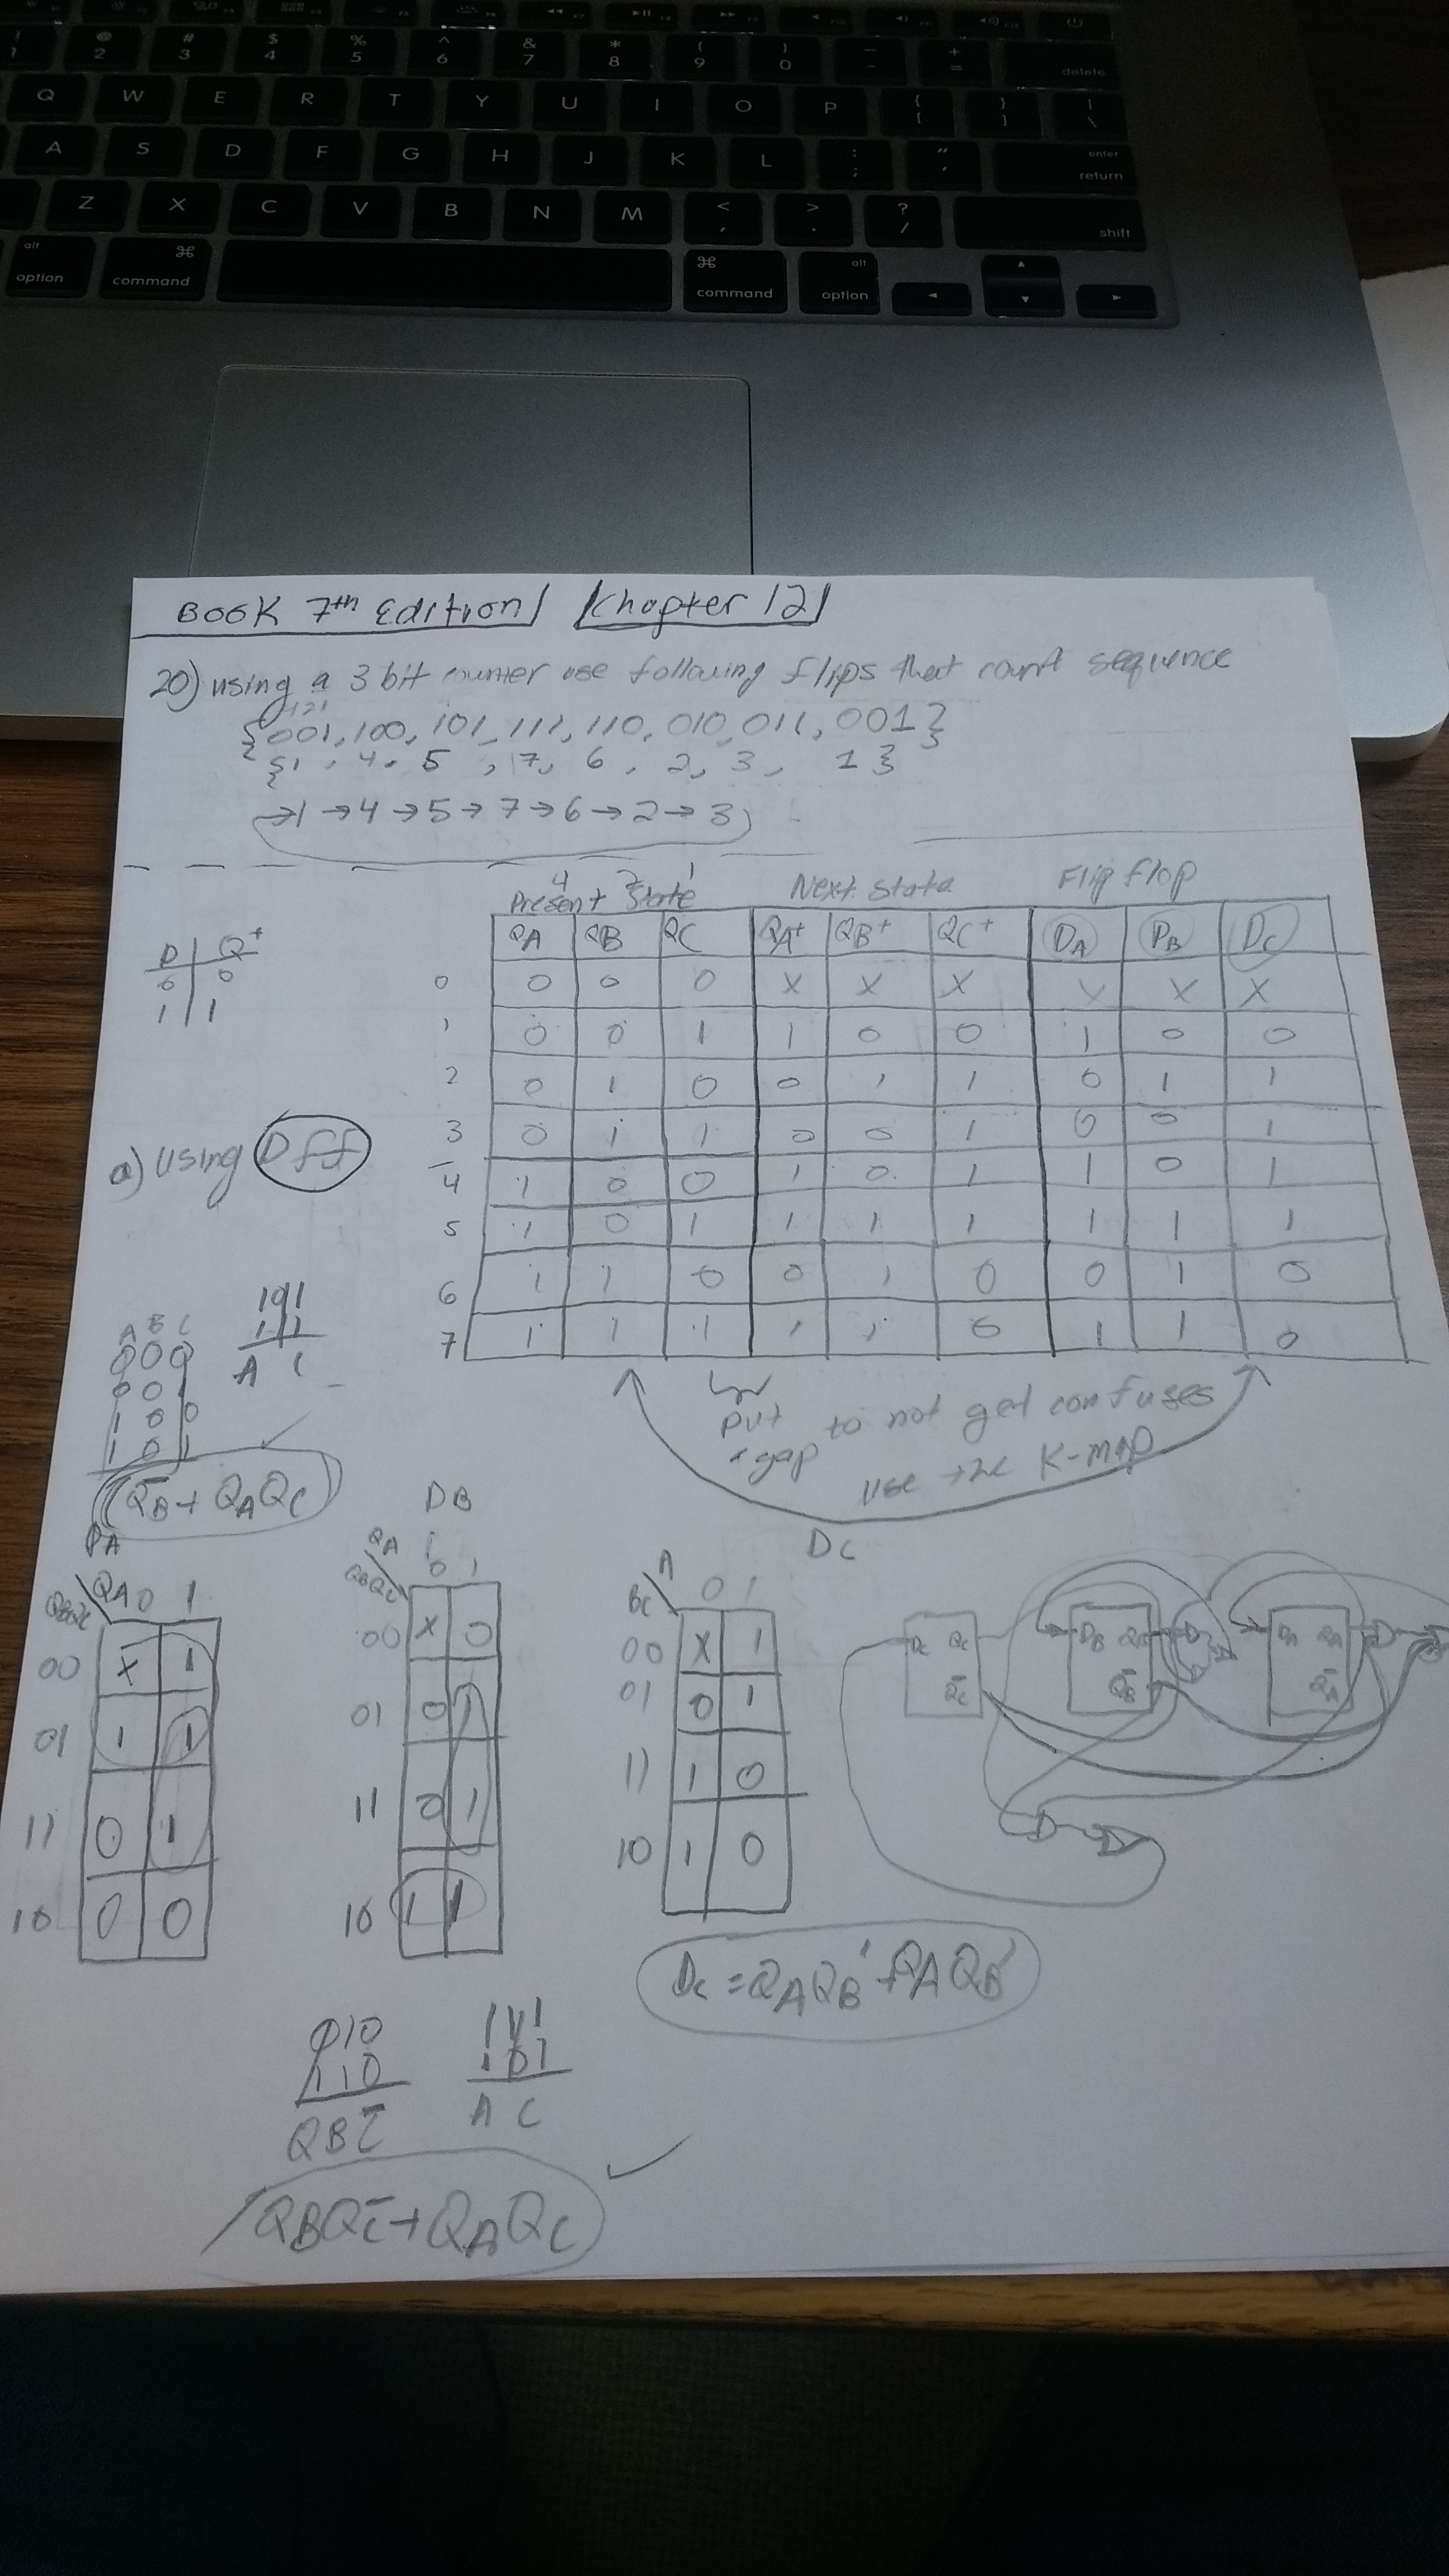 ! 1 @ 2 # 3 $ 4 % 5 ^ 6 & 7 * 8 ( 9 ) 0 _ - + = delete
Q W E R T Y U I O P { [ } ] | \
A S D F G H J K L : ; " ' enter return
Z X C V B N M < , > . ? / shift
alt option ⌘ command ⌘ command alt option
BOOK 7th Edition Chapter 12
20) using a 3 bit counter use following flips that count sequence
{001, 100, 101, 111, 110, 010, 011, 001}
{1, 4, 5, 7, 6, 2, 3, 1}
→1→4→5→7→6→2→3
4 2 1
Present State Next State Flip flop
QA QB QC QA+ QB+ QC+ DA DB DC
0 0 0 0 X X X X X X
1 0 0 1 1 0 0 1 0 0
2 0 1 0 0 1 1 0 1 1
3 0 1 1 0 0 1 0 0 1
4 1 0 0 1 0 1 1 0 1
5 1 0 1 1 1 1 1 1 1
6 1 1 0 0 1 0 0 1 0
7 1 1 1 1 1 0 1 1 0
D Q+
0 0
1 1
a) Using Dff
A B C
0 0 0
0 0 1
1 0 0
1 0 1
101
111
A C
Q̄B + QAQC
put to not get confuses
a gap use the K-map
DA
QA 0 1
QBQC
00 X 1
01 1 1
11 0 1
10 0 0
DB
QA 0 1
QBQC
00 X 0
01 0 1
11 0 1
10 1 1
DC
A 0 1
BC
00 X 1
01 0 1
11 1 0
10 1 0
DC QC Q̄C
DB QB Q̄B
DA QA Q̄A
DC = QAQB' + QA'QB
010
110
QBC̄
111
101
A C
QBQ̄C + QAQC